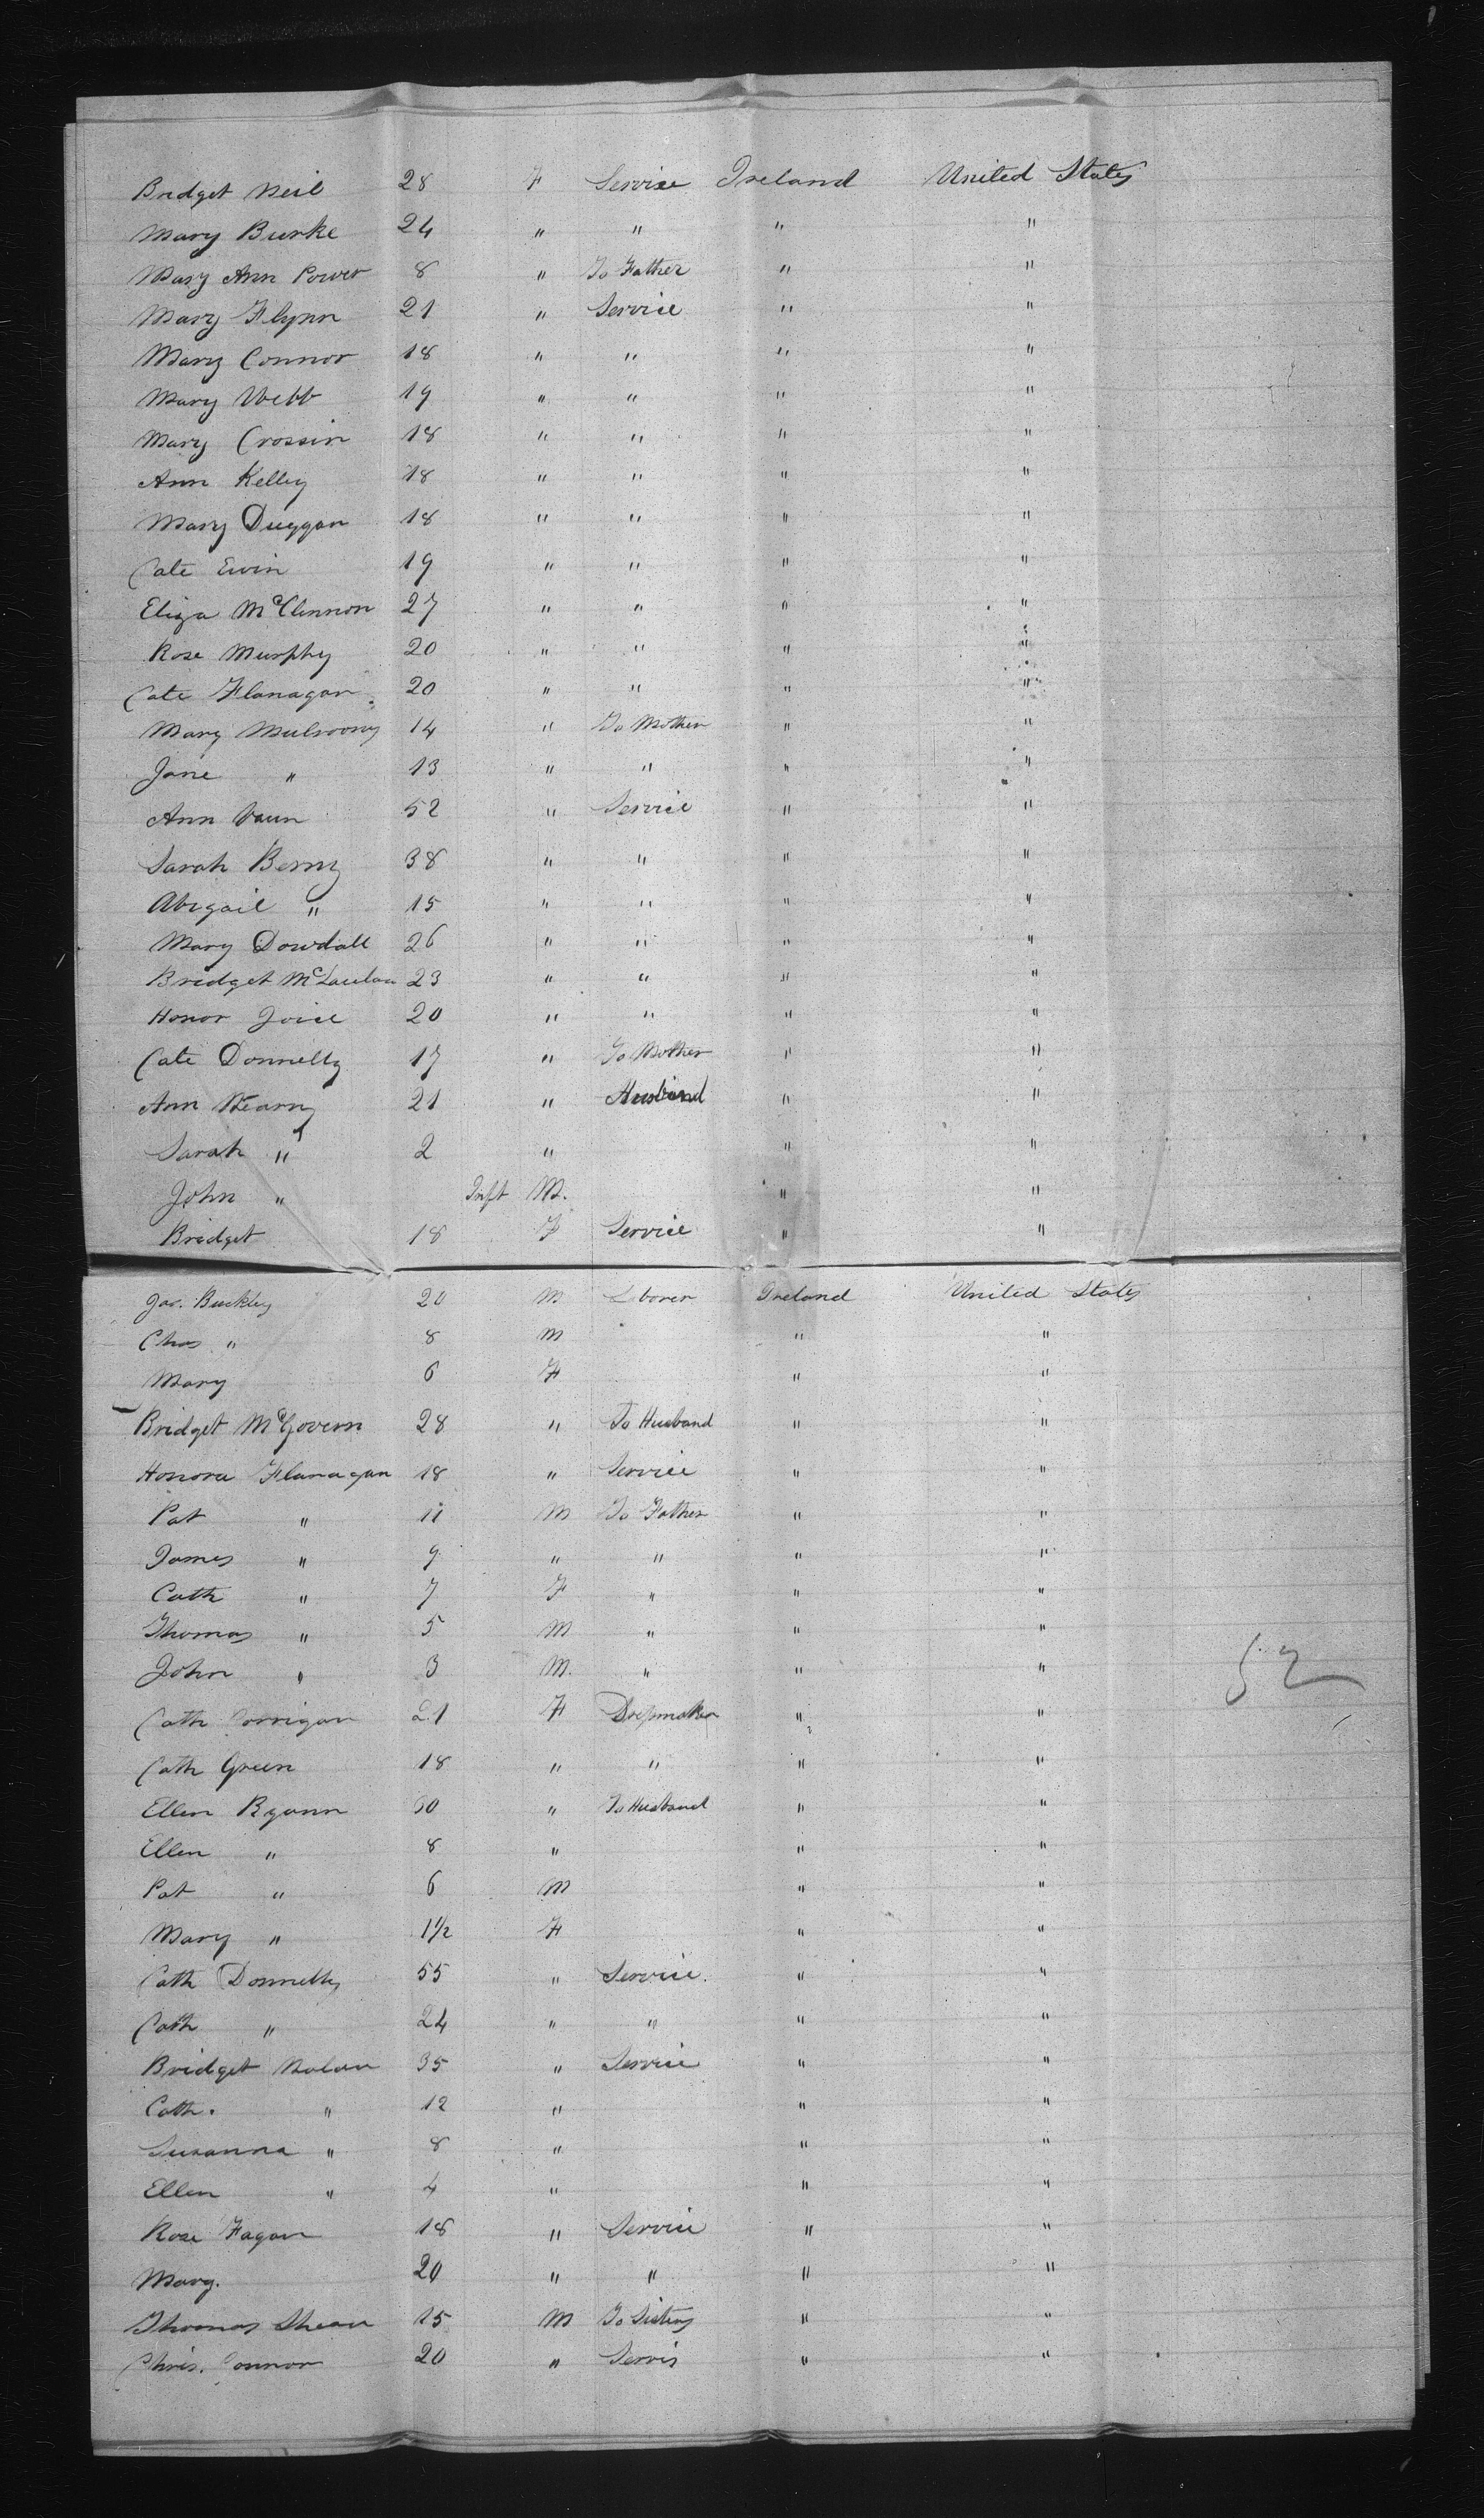 Bridget Neil 28 F Service Ireland United States
Mary Burke 24 " " " "
Mary Ann Power 8 " To Father " "
Mary Flynn 21 " Service " "
Mary Connor 18 " " " "
Mary Webb 19 " " " "
Mary Crossin 18 " " " "
Ann Kelley 18 " " " "
Mary Duggan 18 " " " "
Cate Ewin 19 " " " "
Eliza McClennon 27 " " " "
Rose Murphy 20 " " " "
Cate Flanagan 20 " " " "
Mary Mulroony 14 " To Mother " "
Jane " 13 " " " "
Ann Vaun 52 " Service " "
Sarah Berry 38 " " " "
Abigail " 15 " " " "
Mary Dowdall 26 " " " "
Bridget 23 " " " "
Honor Joice 20 " " " "
Cate Donnelly 17 " To Mother " "
Ann Kearny 21 " Husband " "
Sarah " 2 " " "
John " Inft M. " "
Bridget 18 F Service " "
Jas. Buckley 20 M Laborer Ireland United States
Chas " 8 M " "
Mary 6 F " "
Bridget McGovern 28 " To Husband " "
Honora Flanagan 18 " Service " "
Pat " 11 M To Father " "
James " 9 " " " "
Cath " 7 F " " "
Thomas " 5 M " " "
John " 3 M. " " "
Cath Corrigan 21 F Dressmaker " "
Cath Green 18 " " " "
Ellen Ryann 30 " To Husband " "
Ellen " 8 " " "
Pat " 6 M " "
Mary " 1½ F " "
Cath Donnelly 55 " Service. " "
Cath " 24 " " " "
Bridget Nolan 35 " Service " "
Cath. " 12 " " "
Susanna " 8 " " "
Ellen " 4 " " "
Rose Fagan 18 " Service " "
Mary. 20 " " " "
Thomas Shean 15 M To Sisters " "
Chris. Connor 20 " Servis " "
52